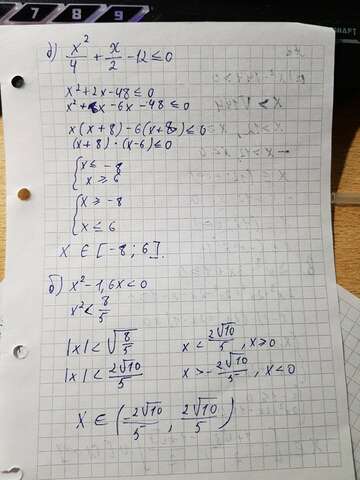 7 8 9
д) x²/4 + x/2 - 12 ≤ 0
x² + 2x - 48 ≤ 0
x² + 8x - 6x - 48 ≤ 0
x(x + 8) - 6(x + 8) ≤ 0
(x + 8) · (x - 6) ≤ 0
{ x ≤ -8
x ≥ 6
{ x ≥ -8
x ≤ 6
X ∈ [-8; 6].
б) x² - 1,6x < 0
x² < 8/5
|x| < √(8/5) x < 2√10/5, x ≥ 0
|x| < 2√10/5 x > -2√10/5, x < 0
X ∈ (-2√10/5, 2√10/5)